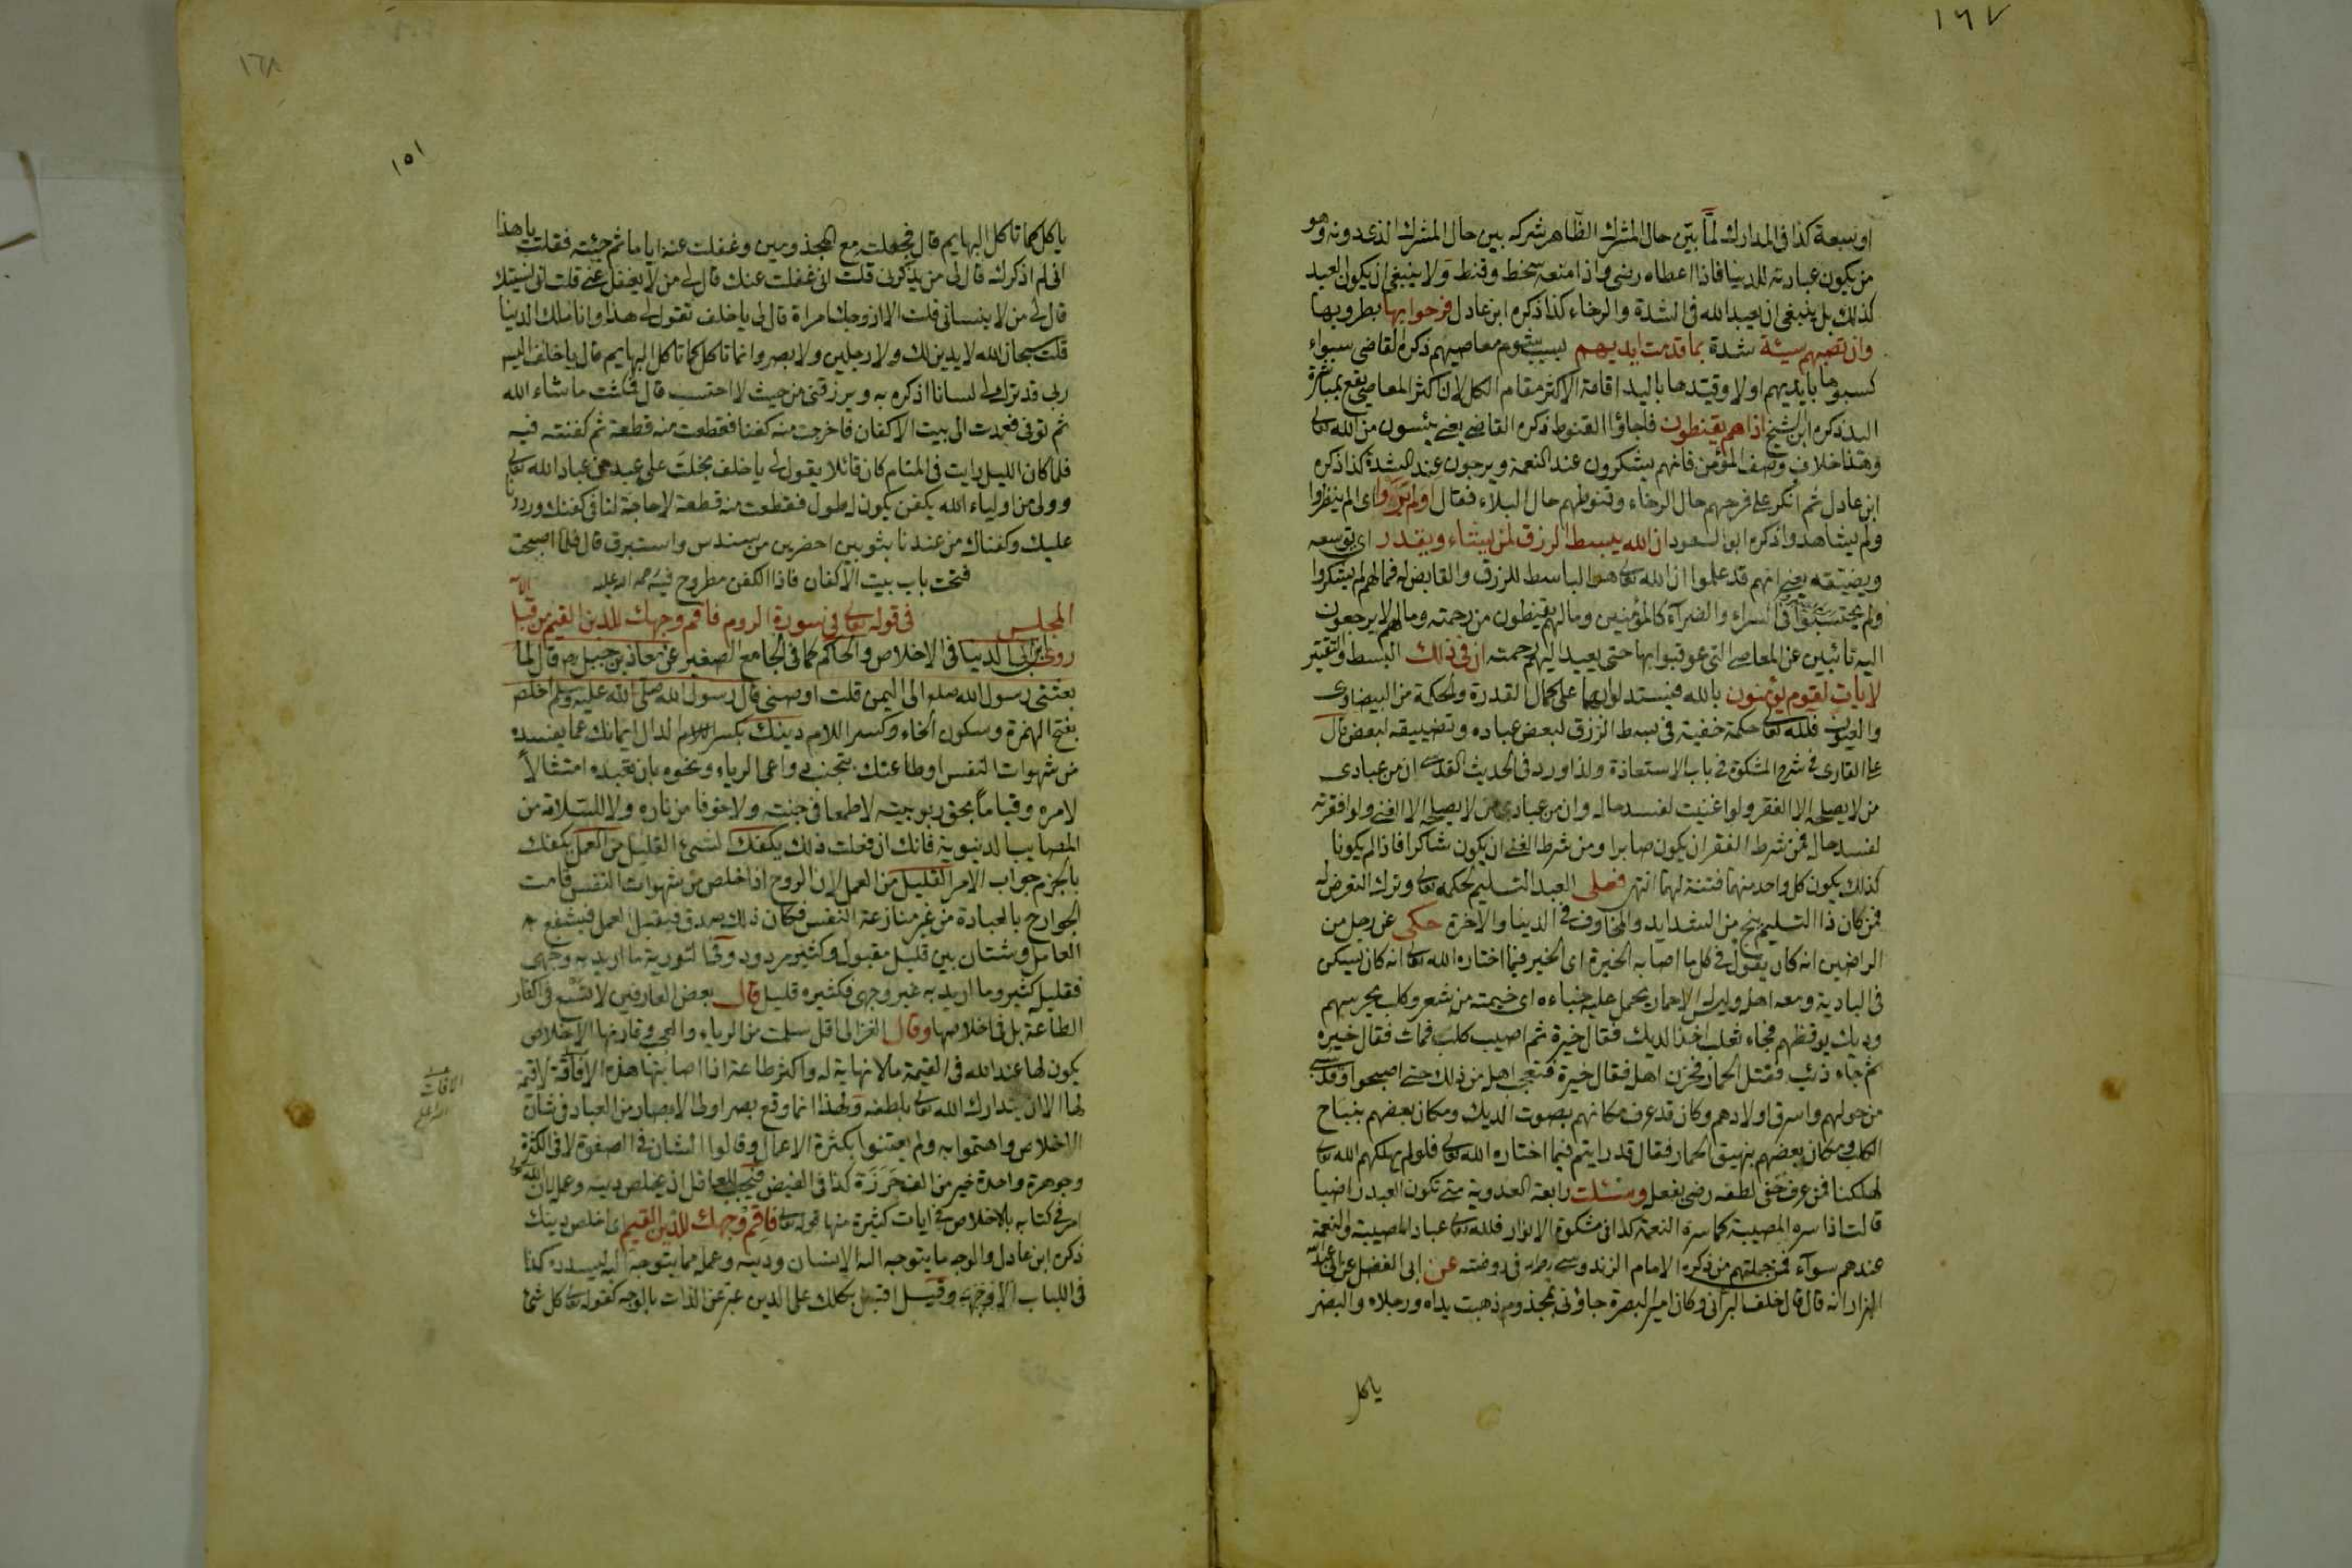 ١٦٧
او سعة كذا فى المدارك لمّا بيّن حال المشرك الظاهر شركه بين حال المشرك الذى دونه وهو
من يكون عبادته للدنيا فاذا اعطاه رضى واذا منعه سخط وقنط ولا ينبغى ان يكون العبد
كذلك بل ينبغى ان يعبد الله فى الشدة والرخاء كذا ذكره ابن عادل فرحوا بها بطروا بها
وان تصبهم سيئة شدة بما قدمت ايديهم بسبب شوم معاصيهم ذكره القاضى سواء
كسبوها بايديهم اولا وقيّدها باليد اقامة الاكثر مقام الكل لان اكثر المعاصى يقع بمباشرة
اليد ذكره ابن الشيخ اذا هم يقنطون فاجاؤا القنوط ذكره القاضى يعنى يئسون من الله تعالى
وهذا خلاف وصف المؤمن فانهم يشكرون عند النعمة ويرجون عند الشدة كذا ذكره
ابن عادل ثم انكر على فرحهم حال الرخاء وقنوطهم حال البلاء فقال اولم يروا اى الم ينظروا
ولم يشاهدوا ذكره ابو السعود ان الله يبسط الرزق لمن يشاء ويقدر اى يوسعه
ويضيقه يعنى انهم قد علموا ان الله تعالى هو الباسط للرزق والقابض له فما لهم لم يشكروا
ولم يحتسبوا فى السراء والضراء كالمؤمنين وما لهم يقنطون من رحمته وما لهم لا يرجعون
اليه تائبين عن المعاصى التى عوقبوا بها حتى يعيد اليهم رحمته ان فى ذلك البسط والتقتير
لايات لقوم يؤمنون بالله فيستدلون بها على كمال القدرة والحكمة من البيضاوى
والعيون فلله تعالى حكمة خفية فى بسط الرزق لبعض عباده وتضييقه لبعض قال
على القارى فى شرح المشكوة فى باب الاستعاذة ولذا ورد فى الحديث القدسى ان من عبادى
من لا يصلحه الا الفقر ولو اغنيت لفسد حاله وان من عبادى من لا يصلحه الا الغنى ولو افقرته
لفسد حاله فمن شرط الفقر ان يكون صابرا ومن شرط الغنى ان يكون شاكرا فاذا لم يكونا
كذلك يكون كل واحد منهما فتنة لهما انتهى فعلى العبد التسليم لحكمه تعالى وترك التعرض له
فمن كان ذا التسليم ينج من الشدايد والمخاوف فى الدنيا والاخرة حكى عن رجل من
الراضين انه كان يقول فى كل ما اصابه الخيرة اى الخير فيما اختاره الله تعالى انه كان يسكن
فى البادية ومعه اهله وليس له الا حمار يحمل عليه خباءه اى خيمته من شعر وكلب يحرسهم
وديك يوقظهم فجاء ثعلب اخذ الديك فقال خيرة ثم اصيب كلب فمات فقال خيره
ثم جاء ذئب فقتل الحمار فحزن اهله فقال خيرة فتعجب اهله من ذلك حتى اصبحوا وقد سبى
من حولهم واسرق اولادهم وكان قد عرف مكانهم بصوت الديك ومكان بعضهم بنباح
الكلب ومكان بعضهم بنهيق الحمار فقال قد رايتم فيما اختاره الله تعالى فلو لم يهلكهم الله تعالى
لهلكنا فمن عرف خفى لطفه رضى بفعله وسئلت رابعة العدوية متى تكون العبد راضيا
قالت اذا سره المصيبة كما سره النعمة كذا فى مشكوة الانوار فلله تعالى عباد المصيبة والنعمة
عندهم سوآء فمن جملتهم من ذكره الامام الزندوسى رحمه الله فى روضته عن ابى الفضل عن ابى عبد الله
البزار انه قال قال خلف البرانى وكان امير البصرة جاؤنى بمجذوم ذهبت يداه ورجلاه والبصر
ياكل
١٦٨
١٥١
ياكل كما تاكل البهايم قال فجعلته مع المجذومين وغفلت عنه اياما ثم جئته فقلت يا هذا
انى لم اذكرك قال لى من يذكرنى قلت انى غفلت عنك قال لى من لا يغفل عنى قلت انى نسيتك
قال لى من لا ينسانى قلت الا ازوجك امراة قال لى يا خلف تقول لى هذا وانا ملك الدنيا
قلت سبحان الله لا يدين لك ولا رجلين ولا بصر وانما تاكل كما تاكل البهايم قال يا خلف اليس
ربى قد ترك لى لسانا اذكره به ويرزقنى من حيث لا احتسب قال فمكثت ما شاء الله
ثم توفى فعمدت الى بيت الاكفان فاخرجت منه كفنا فقطعت منه قطعة ثم كفنته فيه
فلما كان الليل رايت فى المنام كان قائلا يقول لى يا خلف بخلت على عبد من عباد الله تعالى
وولى من اولياء الله بكفن يكون اطول فقطعت منه قطعة لا حاجة لنا فى كفنك ورددنا
عليك وكفناك من عندنا بثوبين اخضرين من سندس واستبرق قال فلما اصبحت
فتحت باب بيت الاكفان فاذا الكفن مطروح فيه رحمة الله عليه
المجلس فى قوله تعالى فى سورة الروم فاقم وجهك للدين القيم من قبل الآية
روى ابن ابى الدنيا فى الاخلاص والحاكم كما فى الجامع الصغير عن معاذ بن جبل رض قال لما
بعثنى رسول الله صلعم الى اليمن قلت اوصنى قال رسول الله صلى الله عليه وسلم اخلص
بفتح الهمزة وسكون الخاء وكسر اللام دينك بكسر الدال ايمانك عما يفسده
من شهوات النفس او طاعتك بتجنب دواعى الرياء ونحوه بان تعبده امتثالاً
لامره وقياماً بحق ربوبيته لا طمعا فى جنته ولا خوفا من ناره ولا للسلامة من
المصايب الدنيوية فانك ان فعلت ذلك يكفك لشىء القليل من العمل يكفك
بالجزم جواب الامر القليل من العمل لان الروح اذا خلص من شهوات النفس قامت
الجوارح بالعبادة من غير منازعة النفس فكان ذلك بصدق فيقبل العمل فيشفع
العامل وشتان بين قليل مقبول وكثير مردود وفى التورية ما اريد به وجهى
فقليله كثير وما اريد به غير وجهى فكثيره قليل قال بعض العارفين لا تتسع فى اكثار
الطاعة بل فى اخلاصها وقال الغزالى اقل سلمت من الرياء والعجب وقارنها الاخلاص
يكون لها عند الله فى القيمة مالا نهاية له واكثر طاعة اذا اصابتها هذه الافاقة لا قيمة
لها الا ان يتدارك الله تعالى بلطفه ولهذا انما وقع بصر اولى الابصار من العباد فى شان
الاخلاص واهتموا به ولم يعتنوا بكثرة الاعمال وقالوا الشان فى الصفوة لا فى الكثرة
وجوهرة واحدة خير من الف خرزة كذا فى الفيض فيجب للعاقل ان يخلص دينه وعمله لان الله تعالى
امر فى كتابه بالاخلاص فى ايات كثيرة منها قوله تعالى فاقم وجهك للدين القيم اى اخلص دينك
ذكره ابن عادل والوجه ما يتوجه اليه الانسان ودينه وعمله مما يتوجه اليه ليسدده كذا
فى اللباب وقيل اقبل بكلك على الدين عبر عن الذات بالوجه كقوله تعالى كل شئ
الآفات